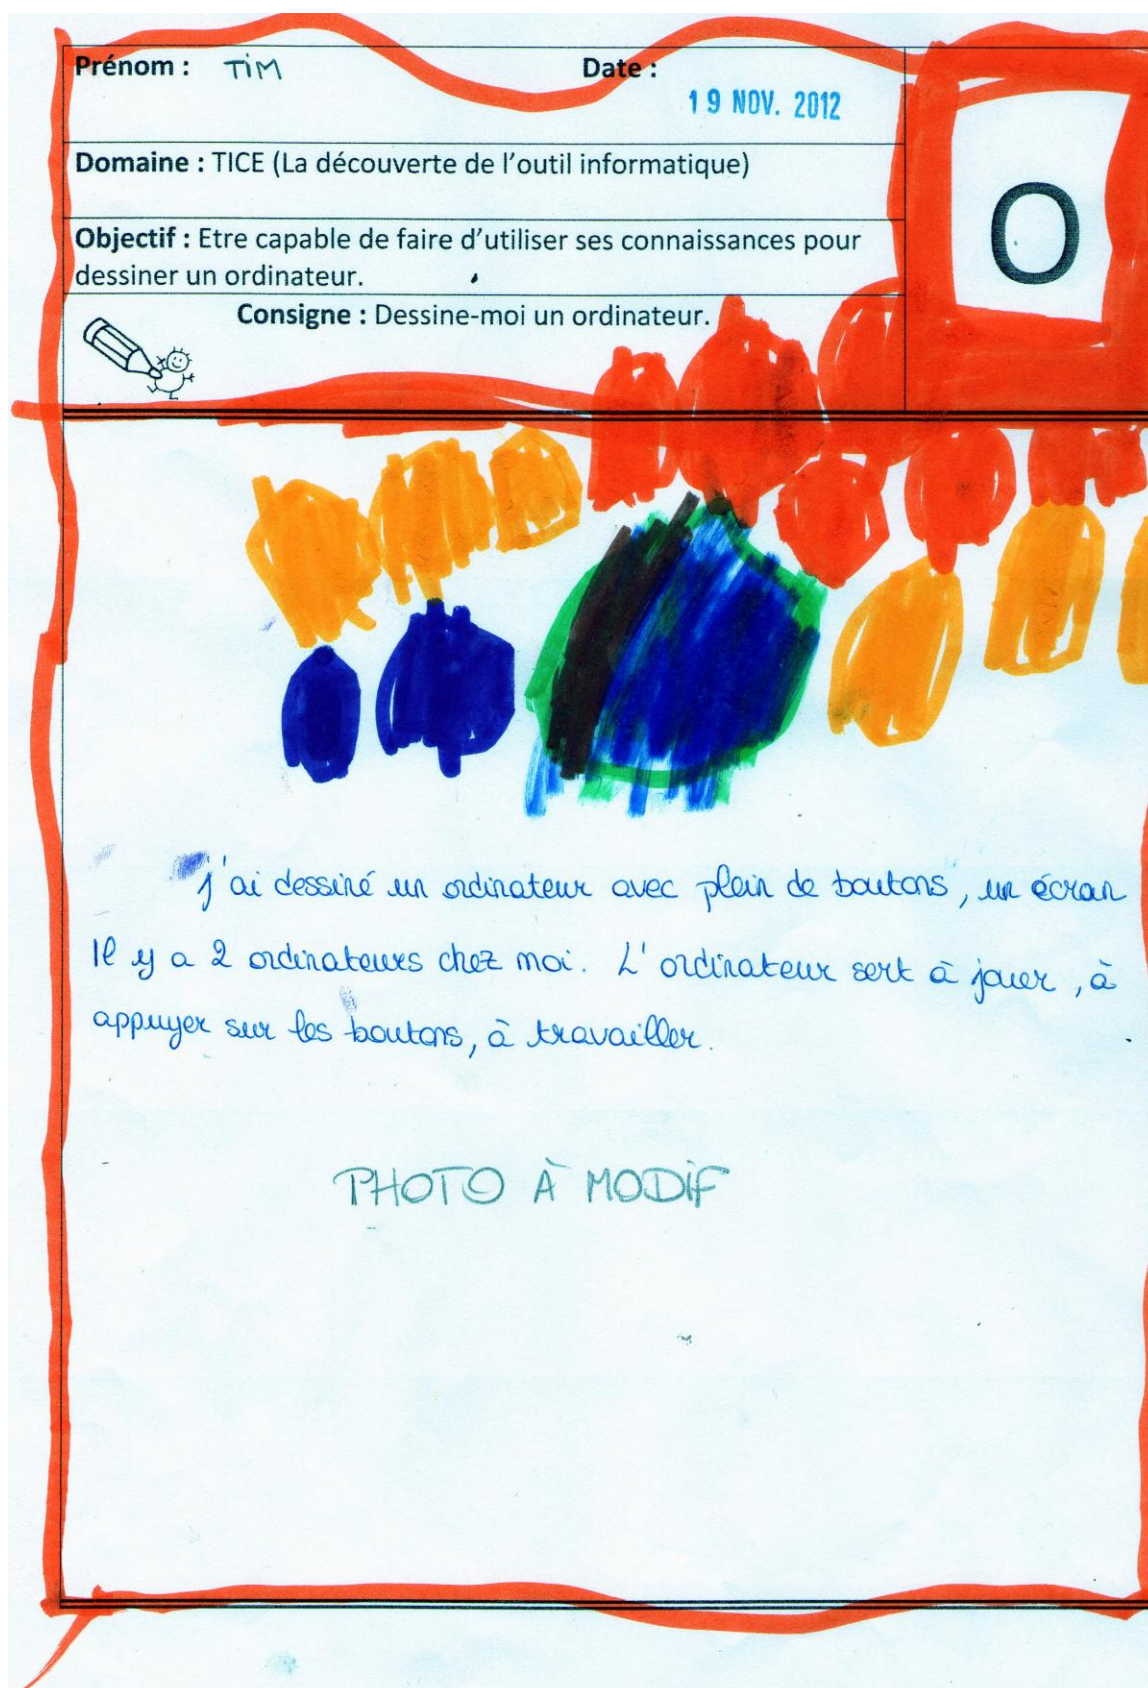 Prénom : TiM Date :
19 NOV. 2012
Domaine : TICE (La découverte de l'outil informatique)
O
Objectif : Etre capable de faire d'utiliser ses connaissances pour
dessiner un ordinateur.
Consigne : Dessine-moi un ordinateur.
j'ai dessiné un ordinateur avec plein de boutons, un écran
Il y a 2 ordinateurs chez moi. L'ordinateur sert à jouer, à
appuyer sur les boutons, à travailler.
PHOTO À MODiF